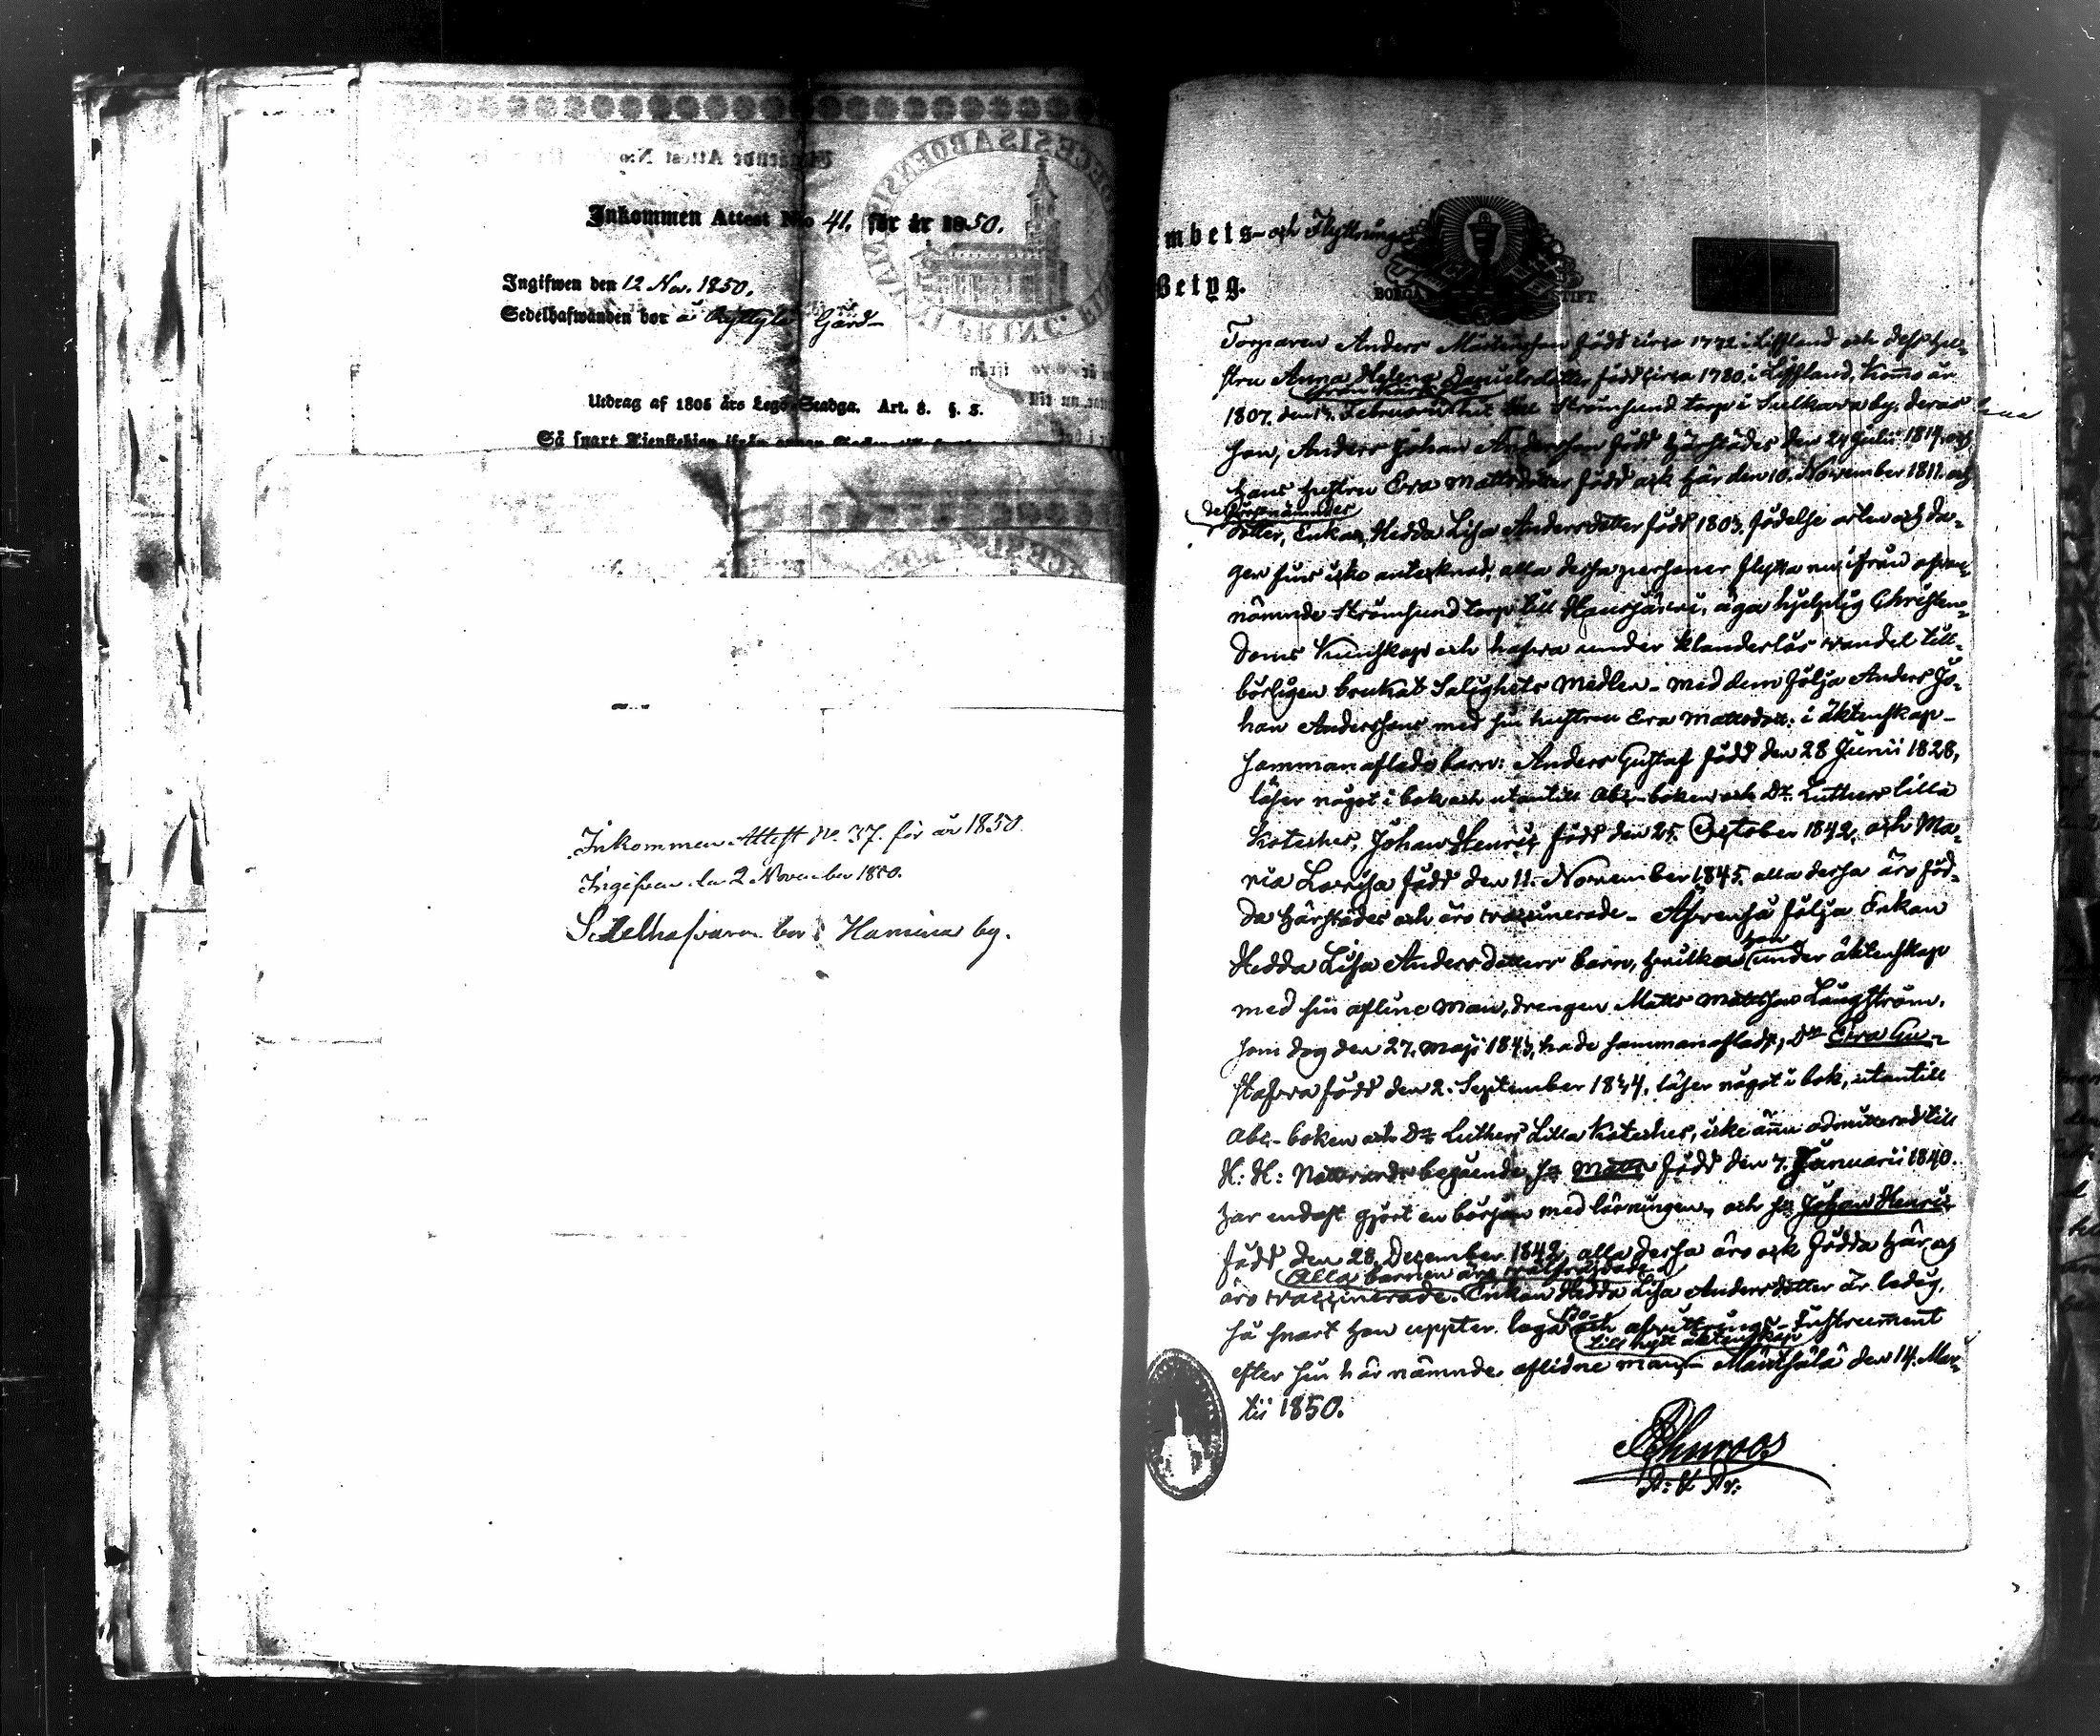 Inkommen Attest N:o 41. för år 1850.
Ingifwen den 12 Nov. 1850.
Sedelhafwanden bor å Ryttylä Gård
Utdrag af 1805 års Lego-Stadga. Art. 8. §. 5.
Så snart
Inkommen Attest No. 37. för år 1850
Ingifven den 2 November 1850.
Sedelhafvaren bor i Hamina by.
mbets- och Flyttnings
Betyg.
BORGÅ STIFT
Torparen Anders Mårtensson född circa 1772 i Liffland och dess hu-
stru Anna Helena Danielsdotter född circa 1780 i Liffland, komo år
1807. den Februarii hit till Strömsund torp i Sulkava by. deras
son, Anders Johan Andersson född härstädes den 24 Julii 1814. och
hans hustru Eva Mattsdotter född ock här den 10. November 1811. och
de förstnämndes
dotter, Enkan, Hedda Lisa Andersdotter född 1805. födelse orten och da-
gen fins icke antecknad, alla dessa personer flytta nu ifrån ofvan-
nämnde Strömsund torp till Hausjärvi, äga hjelplig Christen-
doms kunskap och hafva under klanderlös vandel till-
börligen brukat Salighets Medlen - med dem följa Anders Jo-
han Anderssons med sin hustru Eva Mattsdott: i äktenskap
samman aflade barn: Anders Gustaf född den 28 Junii 1828,
läser något i bok och utantill Abc-boken och Dr. Luthers lilla
Kateches, Johan Henric född den 25. October 1842, och Ma-
ria Lovisa född den 11. November 1845. alla dessa äro föd-
da härstädes och äro vaccinerade - Äfvenså följa Enkan
Hedda Lisa Andersdotters barn, hvilka hon under äktenskap
med sin aflidne man, drengen Matts Mattsson Långström,
som dog den 27. Maji 1843, hade sammanaflat, Dr Eva Gu-
stafva född den 2. September 1834. läser något i bok, utantill
Abc-boken och Dr Luthers Lilla Kateches, icke ännu admitterad till
H: H: Nattvards begående, Sn Matts född den 7. Januarii 1840.
har endast gjort en början med läsningen, och Sn Johan Henric
född den 28. December 1842, alla dessa äro ock födda här och
Alla barnen äro
äro vaccinerade. Enkan Hedda Lisa Andersdotter är ledig,
till nytt äktenskap
så snart hon uppter. laga och afvittrings-Instrument
efter sin här nämnde aflidne man, Mäntsälä den 14. Mar-
tii 1850.